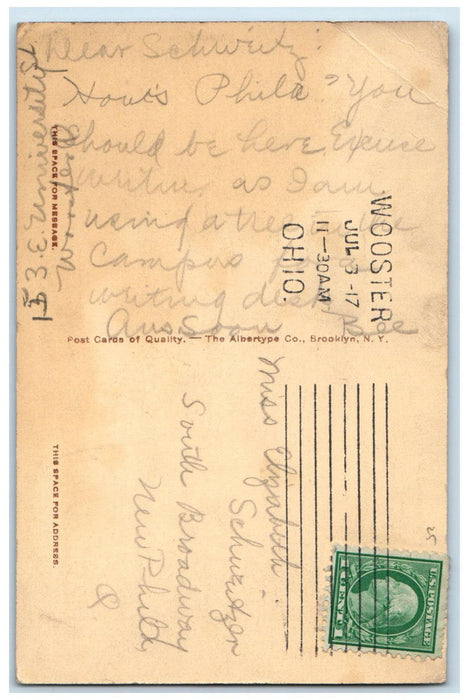 Dear Schweitz:
How's Phila? You
should be here. Excuse
writing as I am
using a tree on the
campus for a
writing desk.
Ans Soon Bee
153 E. University St
Wooster, O.
THIS SPACE FOR MESSAGE.
WOOSTER
JUL 3 -17
11-30AM
OHIO.
Post Cards of Quality. — The Albertype Co., Brooklyn, N. Y.
THIS SPACE FOR ADDRESS.
Miss Elizabeth
Schweitzer
South Broadway
New Phila,
O
25
U.S. POSTAGE
1 CENT 1